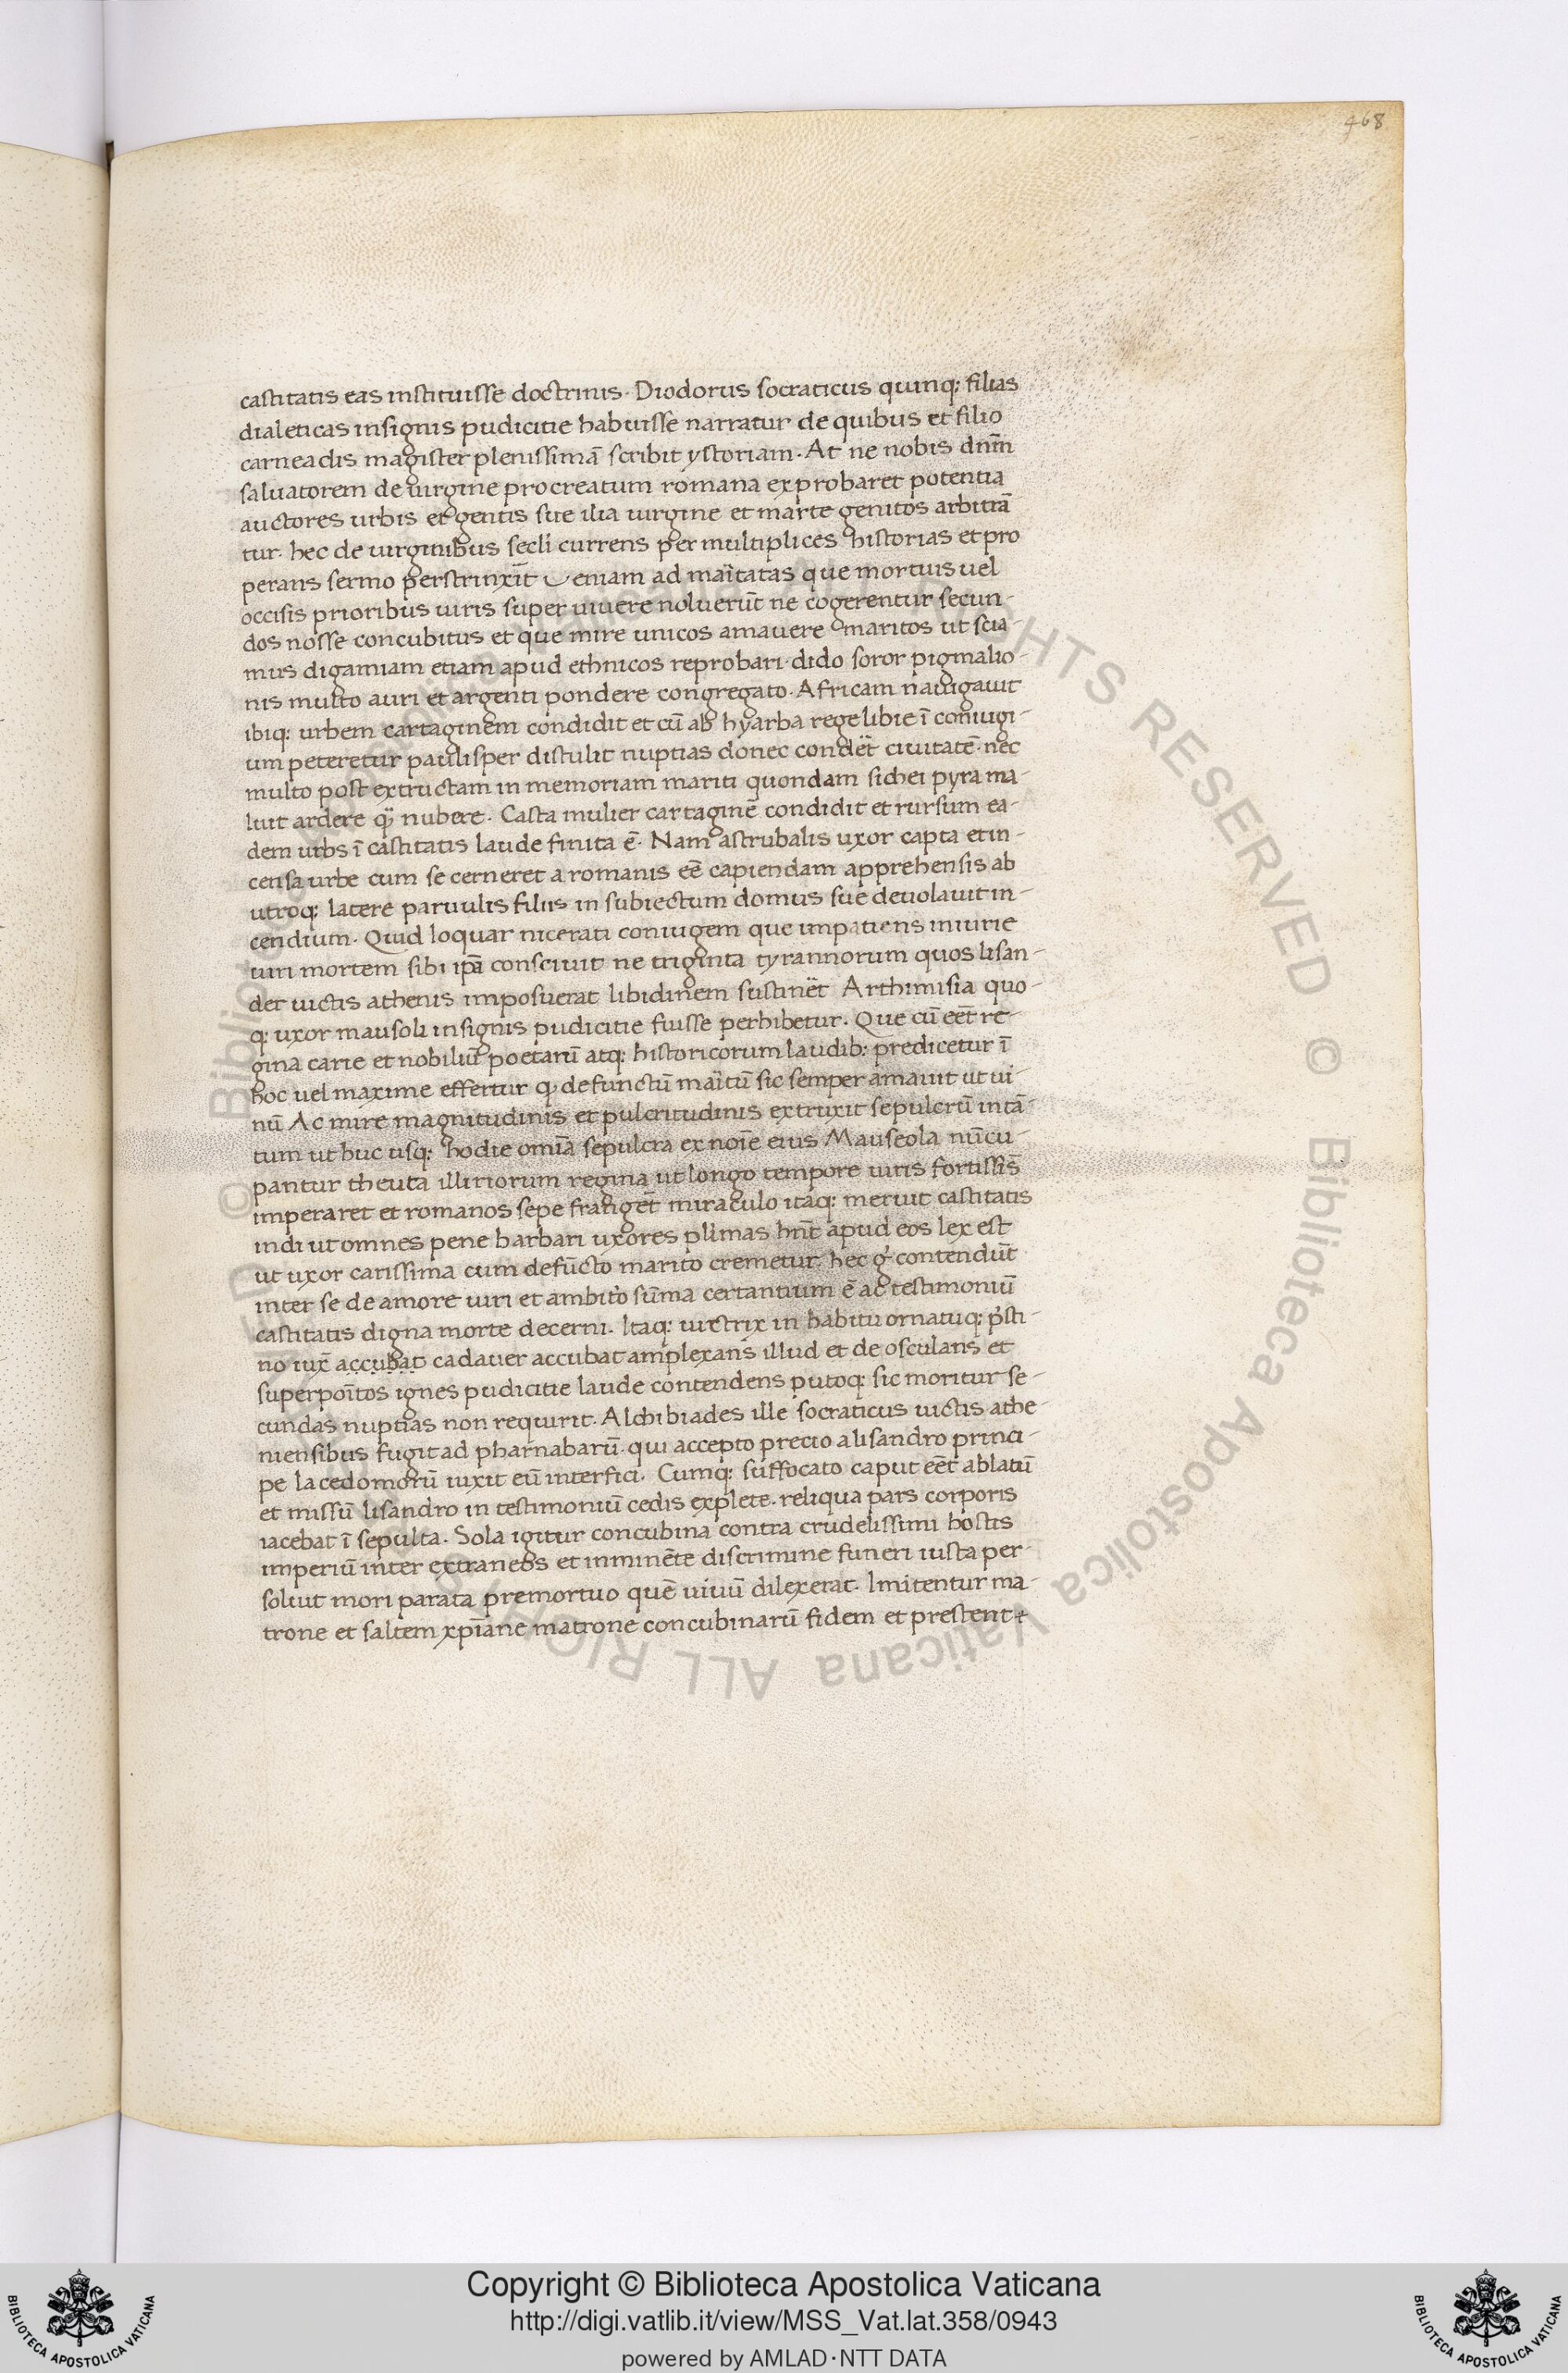 468
castitatis eas instituisse doctrinis. Diodorus socraticus quinq: filias
dialeticas insignis pudicitie habuisse narratur de quibus et filio
carneadis magister plenissimā scribit ystoriam. At ne nobis dnm̄
saluatorem de uirgine procreatum romana exprobaret potentia
auctores urbis et gentis sue ilia uirgine et marte genitos arbitrā
tur. hec de uirginibus secli currens per multiplices historias et pro
perans sermo perstrinxit̄ Veniam ad maritatas que mortuis uel
occisis prioribus uiris super uiuere noluerūt ne cogerentur secun-
dos nosse concubitus et que mire unicos amauere maritos ut scia-
mus digamiam etiam apud ethnicos reprobari. dido soror pigmalio-
nis multo auri et argenti pondere congregato. Africam nauigauit
ibiq: urbem cartaginem condidit et cū ab hyarba rege libie ī coniugi-
um peteretur paulisper distulit nuptias donec condet̄ ciuitatē. nec
multo post extructam in memoriam mariti quondam sichei pyra ma-
luit ardere q̄ nubere. Casta mulier cartaginē condidit et rursum ea-
dem urbs ī castitatis laude finita ē. Nam astrubalis uxor capta et in-
censa urbe cum se cerneret a romanis eē capiendam apprehensis ab
utroq: latere paruulis filiis in subiectum domus sue deuolauit in-
cendium. Quid loquar nicerati coniugem que impatiens iniurie
uiri mortem sibi ip̄a consciuit ne triginta tyrannorum quos lisan-
der uictis athenis imposuerat libidinem sustinet̄ Arthimisia quo-
q: uxor mausoli insignis pudicitie fuisse perhibetur. Que cū eēt re-
gina carie et nobiliū poetarū atq: historicorum laudib: predicetur ī
hoc uel maxime effertur q defunctū maritū sic semper amauit ut ui-
uū Ac mire magnitudinis et pulcritudinis extruxit sepulcrū in tā-
tum ut huc usq: hodie omīa sepulcra ex noīe eius Mauseola nūcu-
pantur theuta illiriorum regina ut longo tempore uiris fortissis̄
imperaret et romanos sepe franget̄ miraculo itaq: meruit castitatis
indi ut omnes pene barbari uxores plimas hn̄t apud eos lex est
ut uxor carissima cum defūcto marito cremetur. hec g contendūt
inter se de amore uiri et ambito sūma certantium ē ac testimoniū
castitatis digna morte decerni. Itaq: uictrix in habitu ornatuq: pristi-
no iux̄ accubat cadauer accubat amplexans illud et de osculans et
superpoītos ignes pudicitie laude contendens putoq: sic moritur se-
cundas nuptias non requirit. Alchibiades ille socraticus uictis athe-
niensibus fugit ad pharnabarū. qui accepto precio a lisandro princi-
pe lacedomorū iuxit eū interfici. Cumq: suffocato caput eēt ablatū
et missū lisandro in testimoniū cedis explete. reliqua pars corporis
iacebat ī sepulta. Sola igitur concubina contra crudelissimi hostis
imperiū inter extraneos et inminēte discrimine funeri iusta per-
soluit mori parata premortuo quē uiuū dilexerat. Imitentur ma-
trone et saltem xp̄iane matrone concubinarū fidem et prestent
© Biblioteca Apostolica Vaticana ALL RIGHTS RESERVED © Biblioteca Apostolica Vaticana ALL RIGHTS RESERVED
Copyright © Biblioteca Apostolica Vaticana
http://digi.vatlib.it/view/MSS_Vat.lat.358/0943
powered by AMLAD·NTT DATA
BIBLIOTECA APOSTOLICA VATICANA
BIBLIOTECA APOSTOLICA VATICANA